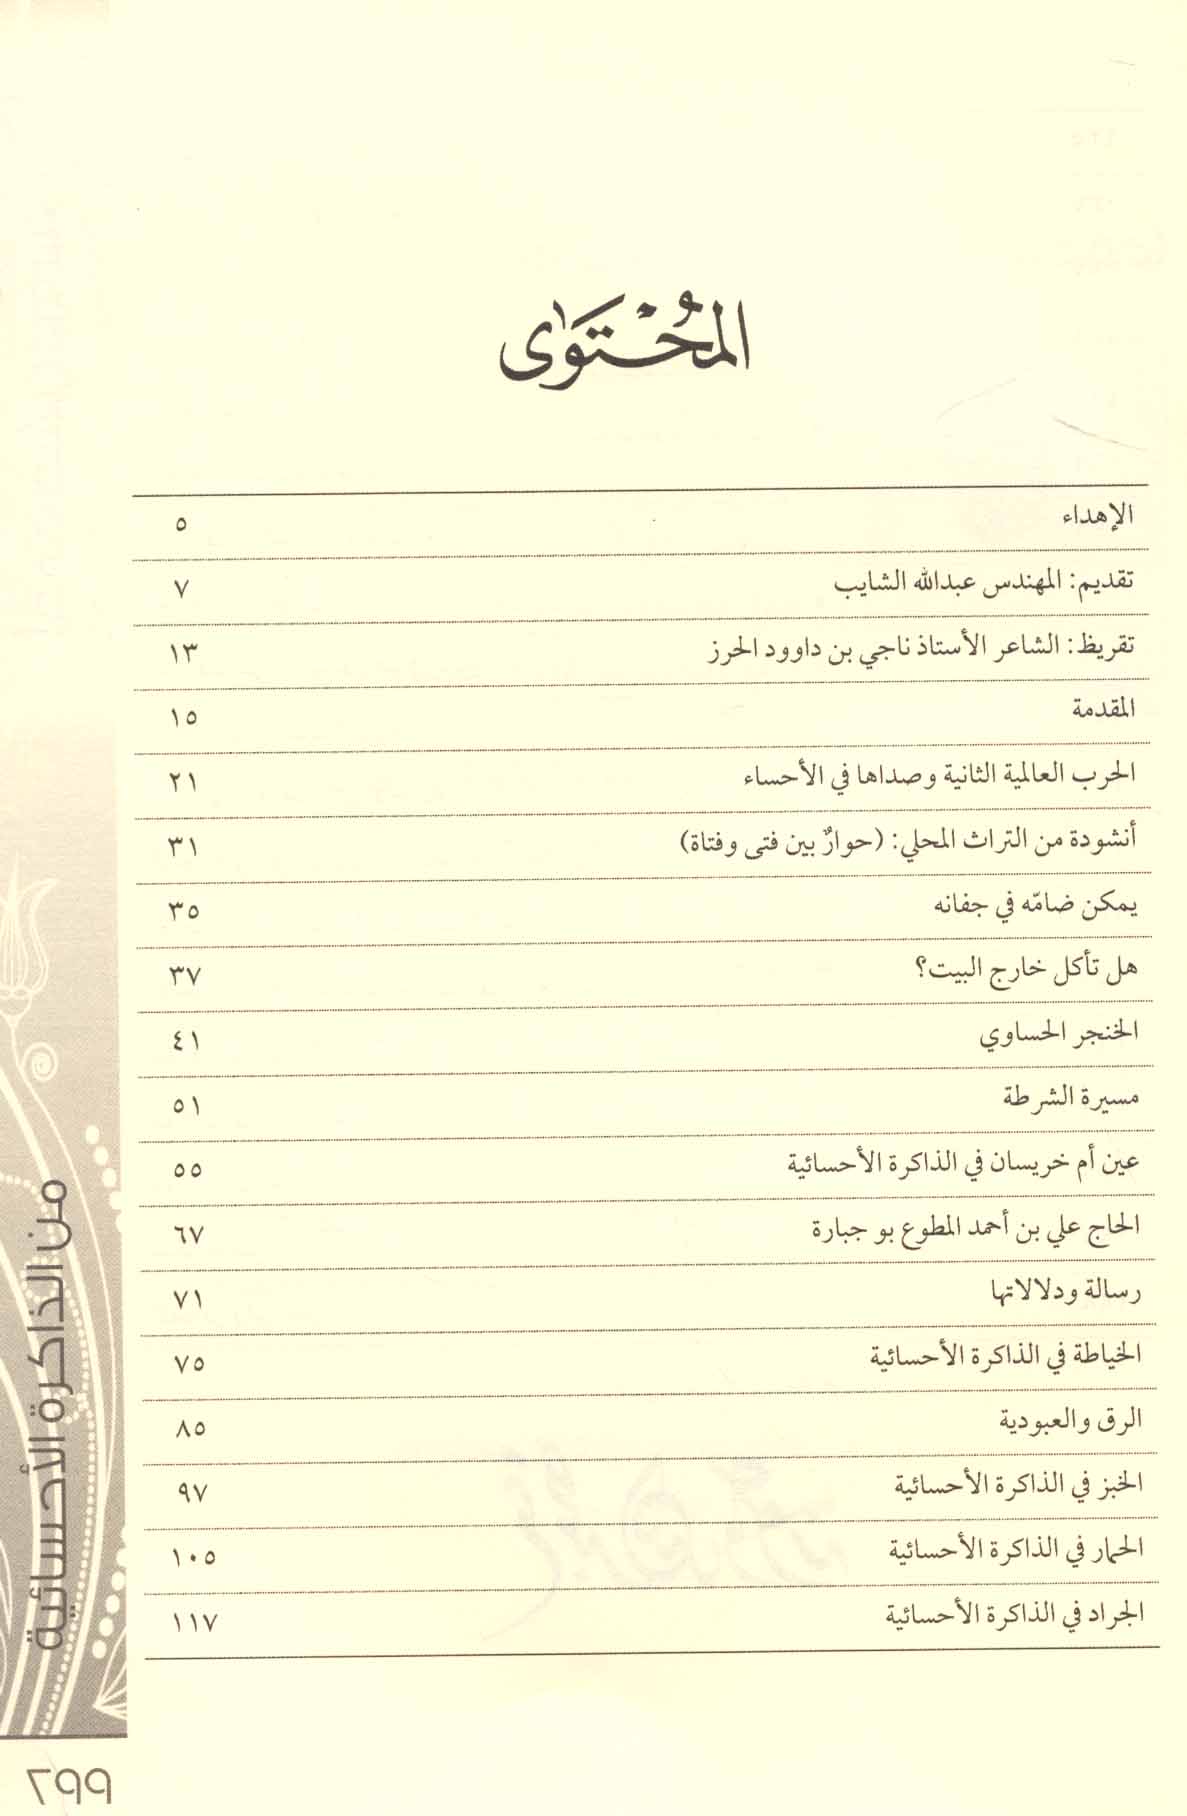 المُحْتَوى
الإهداء ٥
تقديم: المهندس عبدالله الشايب ٧
تقريظ: الشاعر الأستاذ ناجي بن داوود الحرز ١٣
المقدمة ١٥
الحرب العالمية الثانية وصداها في الأحساء ٢١
أنشودة من التراث المحلي: (حوارٌ بين فتى وفتاة) ٣١
يمكن ضامّه في جفانه ٣٥
هل تأكل خارج البيت؟ ٣٧
الخنجر الحساوي ٤١
مسيرة الشرطة ٥١
عين أم خريسان في الذاكرة الأحسائية ٥٥
الحاج علي بن أحمد المطوع بو جبارة ٦٧
رسالة ودلالاتها ٧١
الخياطة في الذاكرة الأحسائية ٧٥
الرق والعبودية ٨٥
الخبز في الذاكرة الأحسائية ٩٧
الحمار في الذاكرة الأحسائية ١٠٥
الجراد في الذاكرة الأحسائية ١١٧
من الذاكرة الأحسائية